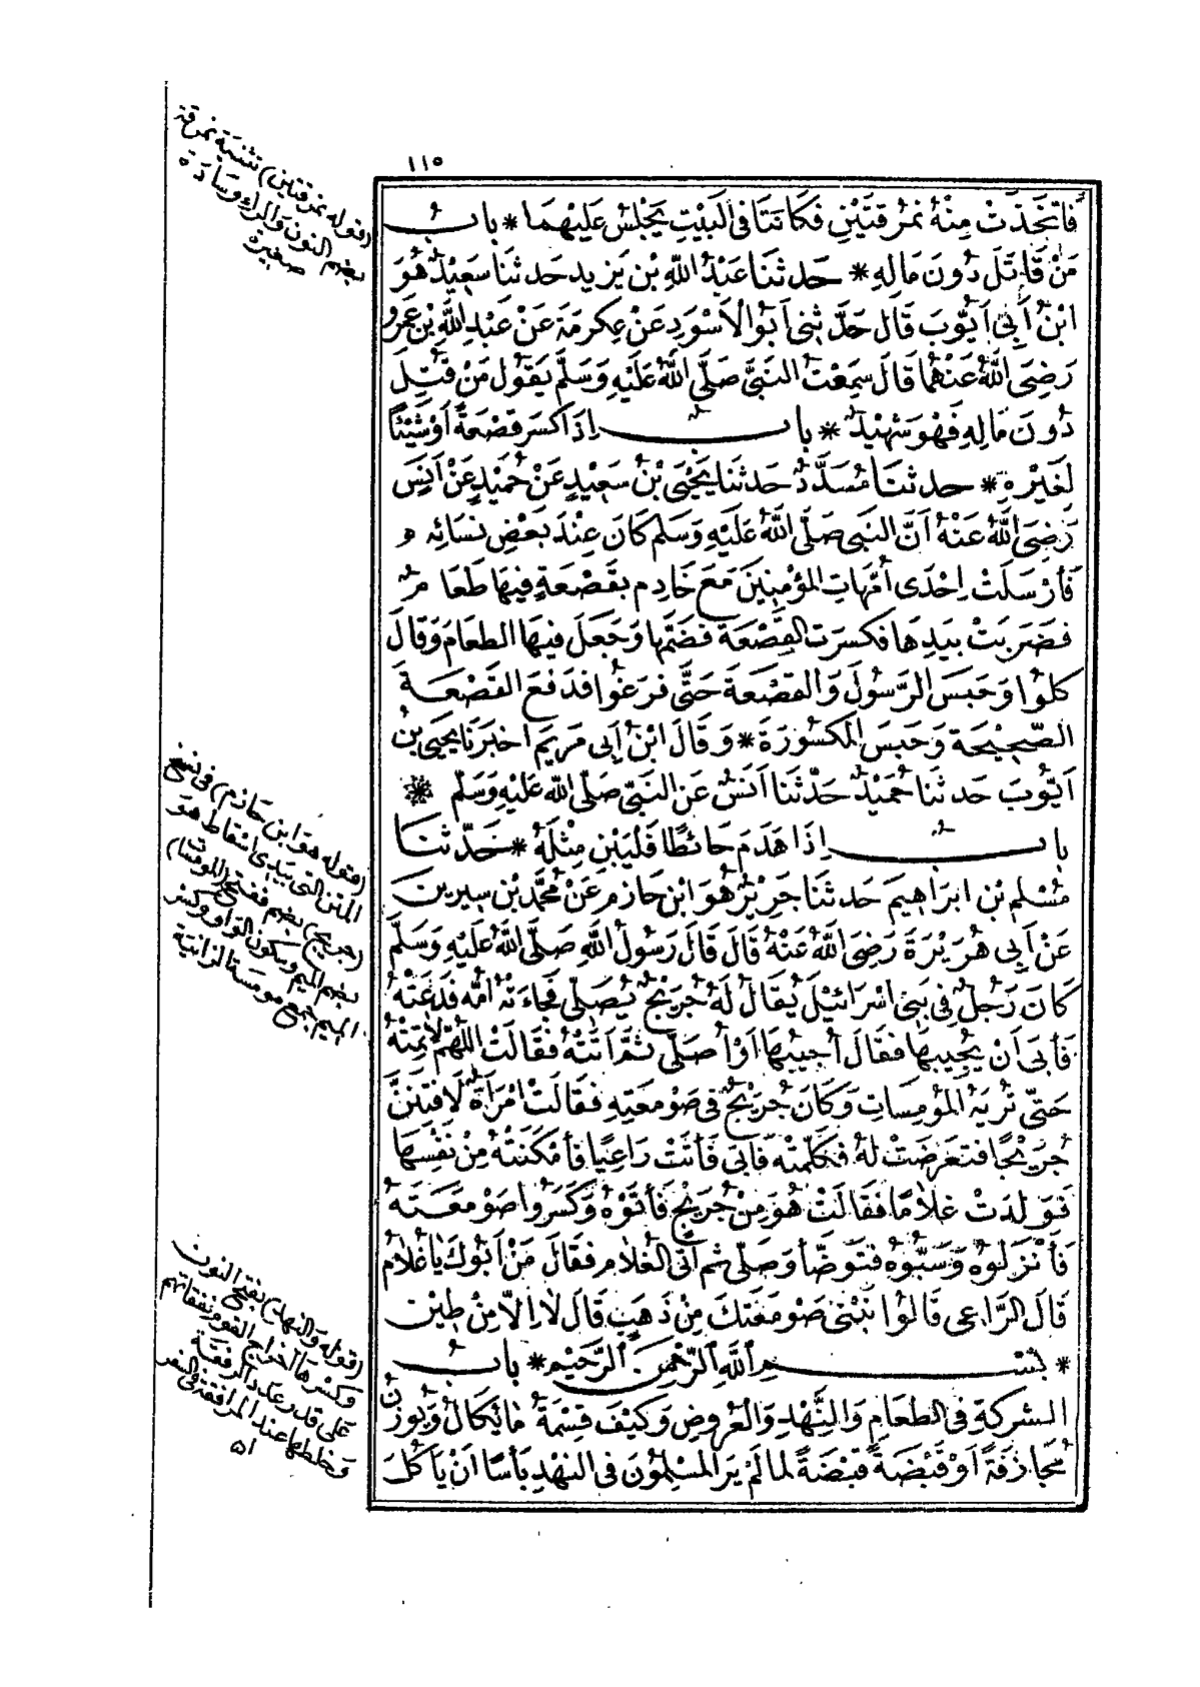 ١١٥
فَاتَّخَذَتْ مِنْهُ نُمْرُقَتَيْنِ فَكَانَتَا فِى الْبَيْتِ يَجْلِسُ عَلَيْهِمَا * بابُ
مَنْ قَاتَلَ دُونَ مَالِهِ * حَدثنَا عَبْدُ اللهِ بْن يَزِيد حَدثنَا سَعِيْدٌ هُوَ
ابْنُ أَبِى أَيُّوبَ قَال حَدَّثنِى أَبُو الأَسْوَدِ عَنْ عِكرمَة عَنْ عَبْدِ اللهِ بْن عَمرو
رَضِىَ اللهُ عَنْهُمَا قَالَ سَمِعْتُ النبىَّ صَلَّى اللهُ عَلَيْهِ وَسَلَّم يَقُول مَنْ قُتِلَ
دُونَ مَالِهِ فَهُوَ شَهِيْدٌ * بابٌ إِذَا كَسَرَ قَصْعَةً أَوْ شَيْئًا
لغَيْرِهِ * حدثنَا مُسَدَّدٌ حَدثنَا يَحْيَى بْنُ سَعِيْدٍ عَنْ حُمَيْدٍ عَنْ أَنَسٍ
رَضِىَ اللهُ عَنْهُ أَنَّ النبىَ صَلَّى اللهُ عَلَيْهِ وَسَلم كَانَ عِنْدَ بَعْضِ نسَائِه
فَأَرْسَلَتْ إِحْدَى أُمَّهَاتِ المُؤْمِنِينَ مَعَ خَادِم بقَصْعَةٍ فِيهَا طَعَامٌ
فضَرَبَتْ بيَدِهَا فكسَرَت القصْعَة فضَمَّها وَجَعَلَ فيهَا الطعَامَ وَقَالَ
كلُوْا وَحَبَسَ الرَّسُولَ وَالقصْعَةَ حَتَّى فرَغُوا فدَفعَ القصْعَةَ
الصَّحِيْحَة وَحَبَسَ المَكسُورَةَ * وَقَالَ ابْنُ أَبِى مَرْيَم أَخبَرَنا يَحْيَى بْنُ
أَيُّوبَ حَدثنَا حُمَيْدٌ حَدَّثنَا أَنَسٌ عَن النَبىِّ صَلَّى اللهُ عَلَيْهِ وَسَلَّم *
بابٌ إِذَا هَدَمَ حَائطًا فَلْيَبْنِ مِثْلَهُ * حَدَّثنَا
مُسْلم بْن ابرَاهِيمَ حَدثنَا جَرِيْرٌ هُوَ ابْن حَازم عَنْ مُحَمَّد بْن سِيرِينَ
عَنْ أَبِى هُرَيْرَةَ رَضِىَ اللهُ عَنْهُ قَالَ قَالَ رَسُولُ اللهِ صَلَّى اللهُ عَلَيْهِ وَسَلَّم
كَانَ رَجُلٌ فِى بَنِى اسْرَائِيْلَ يُقَالُ لَهُ جُرَيْجٌ يُصَلى فجَاءَتهُ أُمُّه فدَعَتْهُ
فَأَبَى أَنْ يُجِيبهَا فقَالَ أُجِيبُهَا أَوْ أُصَلِّى ثمَّ أَتَتْهُ فَقَالَتْ اللهُمَّ لَا تمِتْهُ
حَتَّى تُرِيَهُ المُؤمِسَاتِ وَكَانَ جُرَيْجٌ فِى صَوْمعَتِهِ فقَالَتْ امْرَأَةٌ لَأَفتِنَنَّ
جُرَيْجًا فتعَرضَتْ لهُ فكلَّمَتْه فَأبَى فَأَتَتْ رَاعِيًا فَأَمْكَنَتْهُ مِنْ نَفْسِهَا
فَوَلدَتْ غلاَمًا فقَالَتْ هُوَ مِنْ جُرَيْجٍ فَأَتَوْهُ وَكَسَرُوا صَوْمَعَتَهُ
فَأَنْزَلُوْهُ وَسَبُّوْهُ فتَوَضّأَ وَصَلَّى ثم أَتَى الغُلاَم فقَالَ مَنْ أَبُوكَ يَا غُلاَمُ
قَالَ الرَّاعِى قَالُوْا نَبْنِى صَوْمَعَتَكَ مِنْ ذَهَبٍ قَالَ لاَ إِلاَّ مِنْ طِيْنٍ
* بسْمِ اللهِ الرَّحْمنِ الرَّحِيْمِ * بابُ
الشركَةِ فِى الطعَامِ وَالنَّهْدِ وَالعُرُوضِ وَكَيْفَ قِسْمَةُ مَا يُكَالُ وَيُوزَنُ
مُجَازَفَةً أَوْ قَبْضَةً قَبْضَةً لمَا لَمْ يَرَ المُسْلِمُوْنَ فِى النهْدِ بَأْسًا أَنْ يَأْكُلَ
(قوله نمرقتين) تثنية نمرقة
بضم النون والراء وسادة
صغيرة
(قوله هو ابن حازم) فى نسخ
المتن التى بيدى اسقاط هو
(جريج) بضم ففتح (المومسات)
بضم الميم وسكون الواو وكسر
الميم جمع مومسة الزانية
(قوله والنهد) بفتح النون
وكسرها اخراج القوم نفقاتهم
على قدر عدد الرفقة
وخلطها عند المرافقة فى السفر
اه